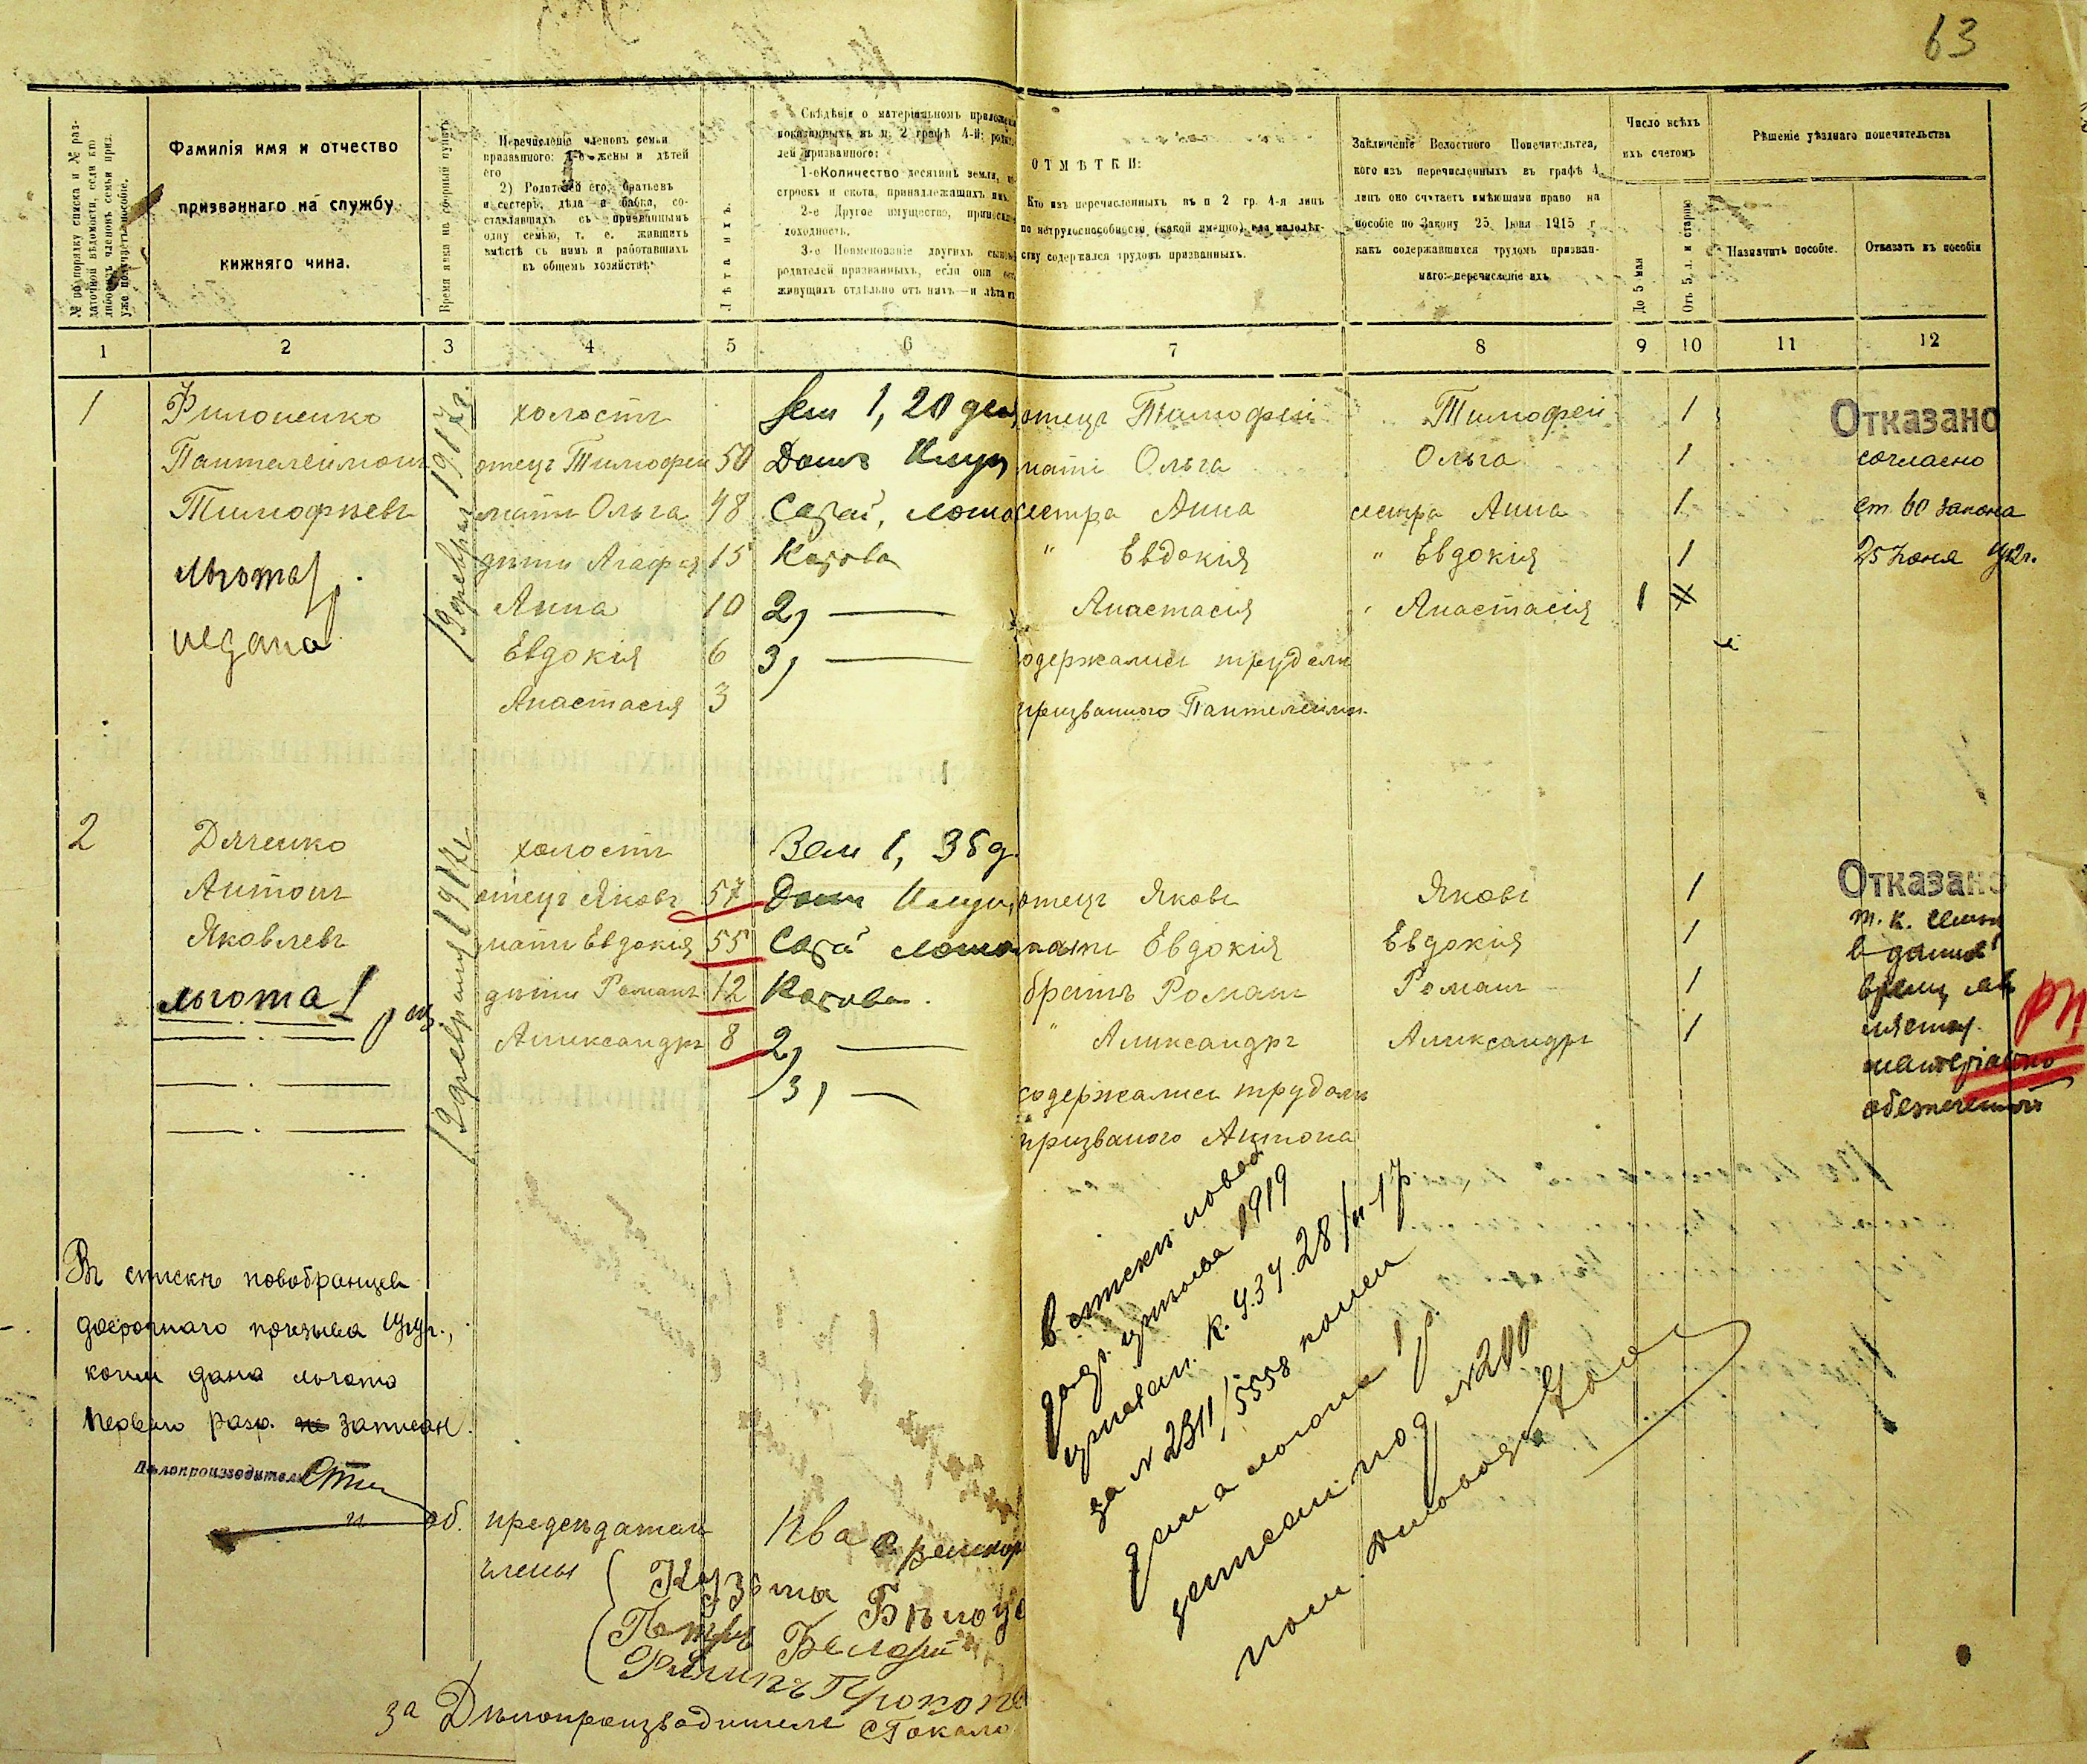 63
№ по порядку списка и № раз-
даточной вѣдомости, если кто
либо изъ членовъ семьи приз.
уже получаетъ пособіе.
Фамилія имя и отчество
призваннаго на службу
нижняго чина.
Время явки на сборный пунктъ
Перечисленіе членовъ семьи
призваннаго: 1-е жены и дѣтей
его
2) Родителей его, братьевъ
и сестеръ, дѣда и бабка, со-
ставлявшихъ съ призваннымъ
одну семью, т. е. жившихъ
вмѣстѣ съ нимъ и работавшихъ
въ общемъ хозяйствѣ.
Лѣта ихъ.
Свѣдѣнія о матеріальномъ
показанныхъ въ п. 2 графѣ 4-й:
лей призваннаго:
1-е Количество десятинъ земли,
строекъ и скота, принадлежащихъ имъ.
2-е Другое имущество,
доходность.
3-е Поименованіе другихъ
родителей призванныхъ, если они
живущихъ отдѣльно отъ нихъ—и лѣта
ОТМѢТКИ:
Кто изъ перечисленныхъ въ п 2 гр. 4-я лицъ
по нетрудоспособности (какой именно) или малолѣт-
ству содержался трудомъ призванныхъ.
Заключеніе Волостного Попечительства,
кого изъ перечисленныхъ въ графѣ 4
лицъ оно считаетъ имѣющими право на
пособіе по Закону 25 Іюня 1915 г
какъ содержавшихся трудомъ призван-
наго:-перечисленіе ихъ
Число всѣхъ
ихъ счетомъ
До 5 мая
Отъ 5 л. и старше
Рѣшеніе уѣзднаго попечительства
Назначить пособіе.
Отказать въ пособіи
1 2 3 4 5 6 7 8 9 10 11 12
1 Филоненко холостъ 1, 20 дес, отецъ Тимофей Тимофей 1 Отказано
Пантелеймонъ отецъ Тимофей 50 Домъ мати Ольга Ольга 1 согласно
Тимофѣевъ мати Ольга 48 Сарай, лоша сестра Анна сестра Анна 1 ст. 60 закона
льгота дѣти Агафія 15 Корова " Евдокія " Евдокія 1 25 Іюня 1912г.
недана Анна 10 2, — Анастасія Анастасія 1
Евдокія 6 3, — содержались трудомъ
Анастасія 3 призванного Пантелейм.
19 февраля 1917г.
2 Дяченко холостъ Зем 1, 35 д.
Антонъ отецъ Яковъ 57 Домъ отецъ Яковъ Яковъ 1 Отказано
Яковлевъ мати Евдокія 55 Сарай лоша мати Евдокія Евдокія 1 т. к. семья
льгота 1 дѣти Романъ 12 Корова. братъ Романъ Романъ 1 в данное
Александръ 8 2, — " Александръ Александръ 1 время яв
3, — содержались трудомъ ляется
призваного Антона матеріально
обезпеченной
19 февраля 1917г
РП
Въ спискѣ новобранцев
досрочнаго призыва 1919г.,
коим дана льгота
перваго разр. не записан.
Дѣлопроизводитель
об. предсѣдателя
члены Кузьма
Петръ
Филипъ
за Дѣлопроизводителя
в списки новоб
доср. призыва 1919
за № 2311/5558
дана льгота 1 р
записан под № 200